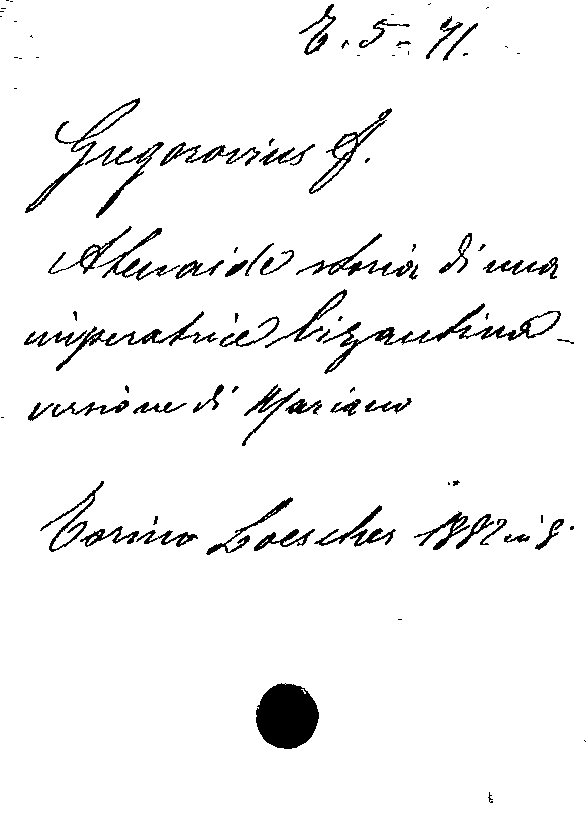 E. 5 - 71.
Gregorovius F.
Atenaide storia di una
imperatrice bizantina -
versione di Mariano
Torino Loescher 1882 in 8.